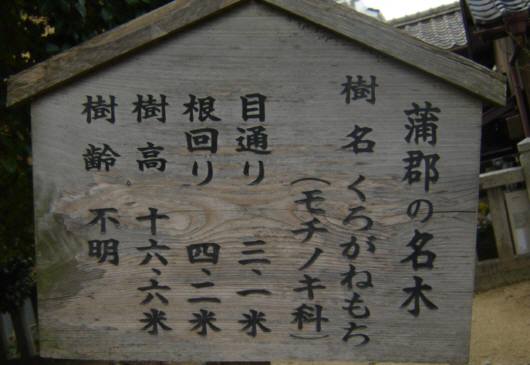 蒲郡の名木
樹名 くろがねもち
(モチノキ科)
目通り 三、一米
根回り 四、二米
樹高 十六、六米
樹齢 不明